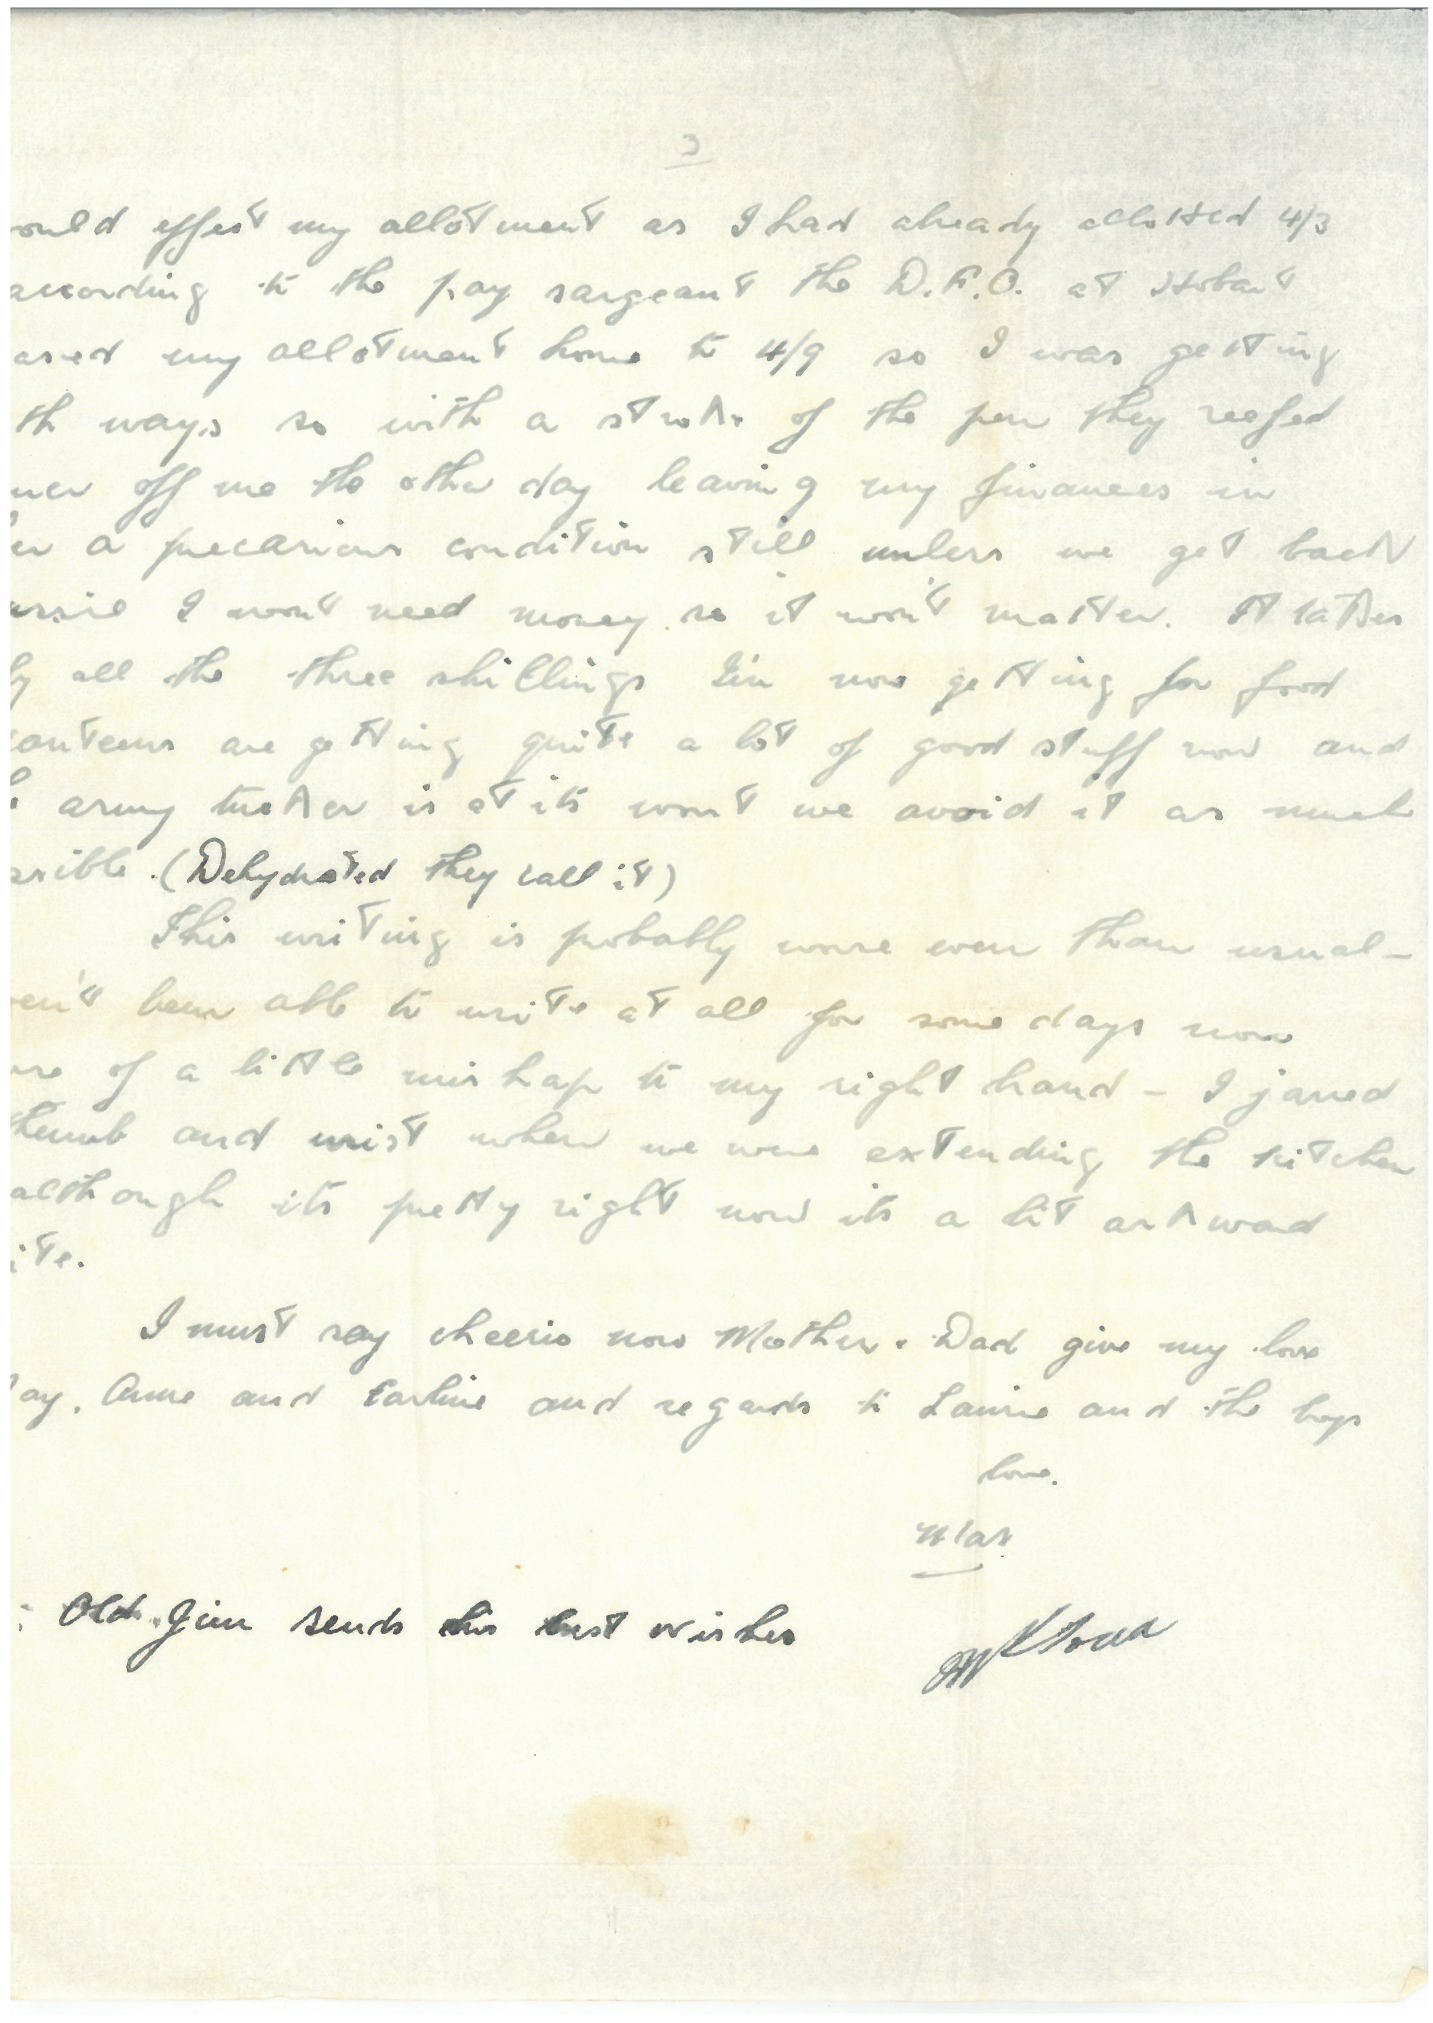 3
ould effect my allotment as I had already allotted 4/3
according to the pay sargeant the D.F.O. at Hobart
ased my allotment home to 4/9 so I was getting
th ways so with a stroke of the pen they reefed
off me the other day leaving my finances in
er a precarious condition still unless we get back
assie I won't need money so it won't matter. It takes
ly all the three shillings I'm now getting for food
canteens are getting quite a lot of good stuff now and
army tucker is at its worst we avoid it as much
ssible. (Dehydrated they call it)
This writing is probably worse even than usual -
ven't been able to write at all for some days now
use of a little mishap to my right hand - I jarred
thumb and wrist when we were extending the kitchen
although its pretty right now its a bit awkward
ite.
I must say cheerio now Mother & Dad give my love
ay, Anne and and regards to Laurie and the boys
love.
Max
: Old Jim sends his best wishes